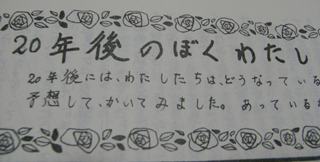 20年後のぼくわたし
20年後には、わたしたちは、どうなっている
予想して、かいてみました。あっている